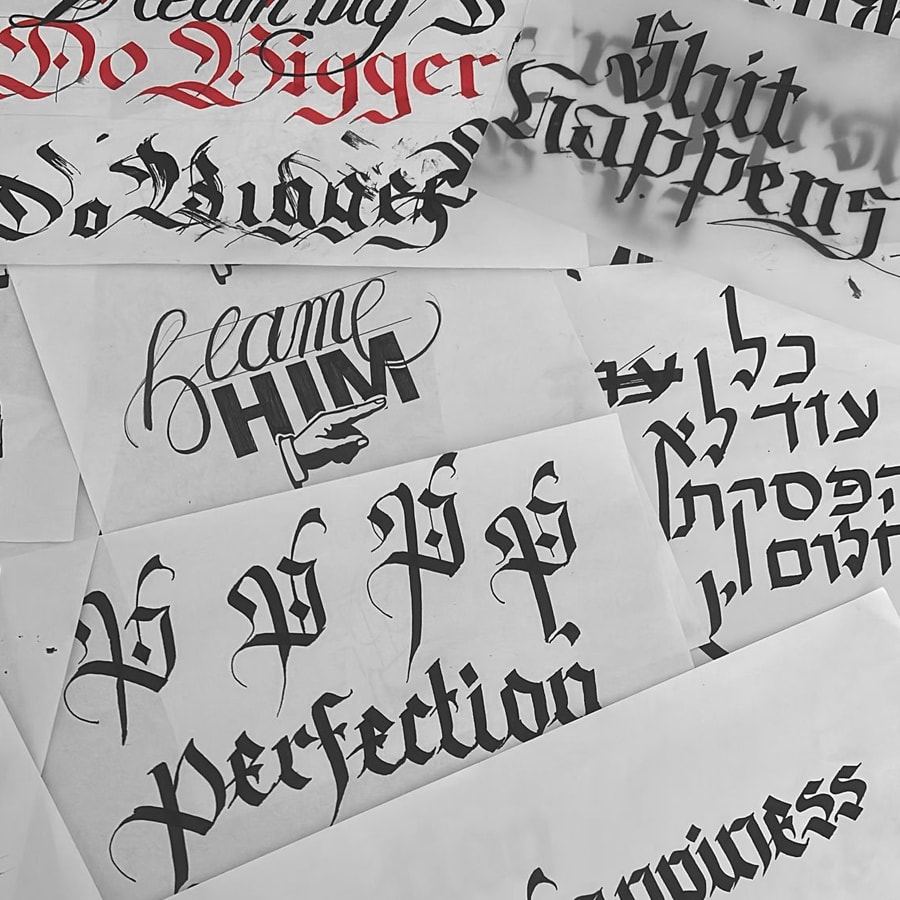 Do Bigger
Do Bigger
Shit
happens
blame
HIM
כל
עוד לא
הפסקת
חלום
P P P P
perfection
happiness